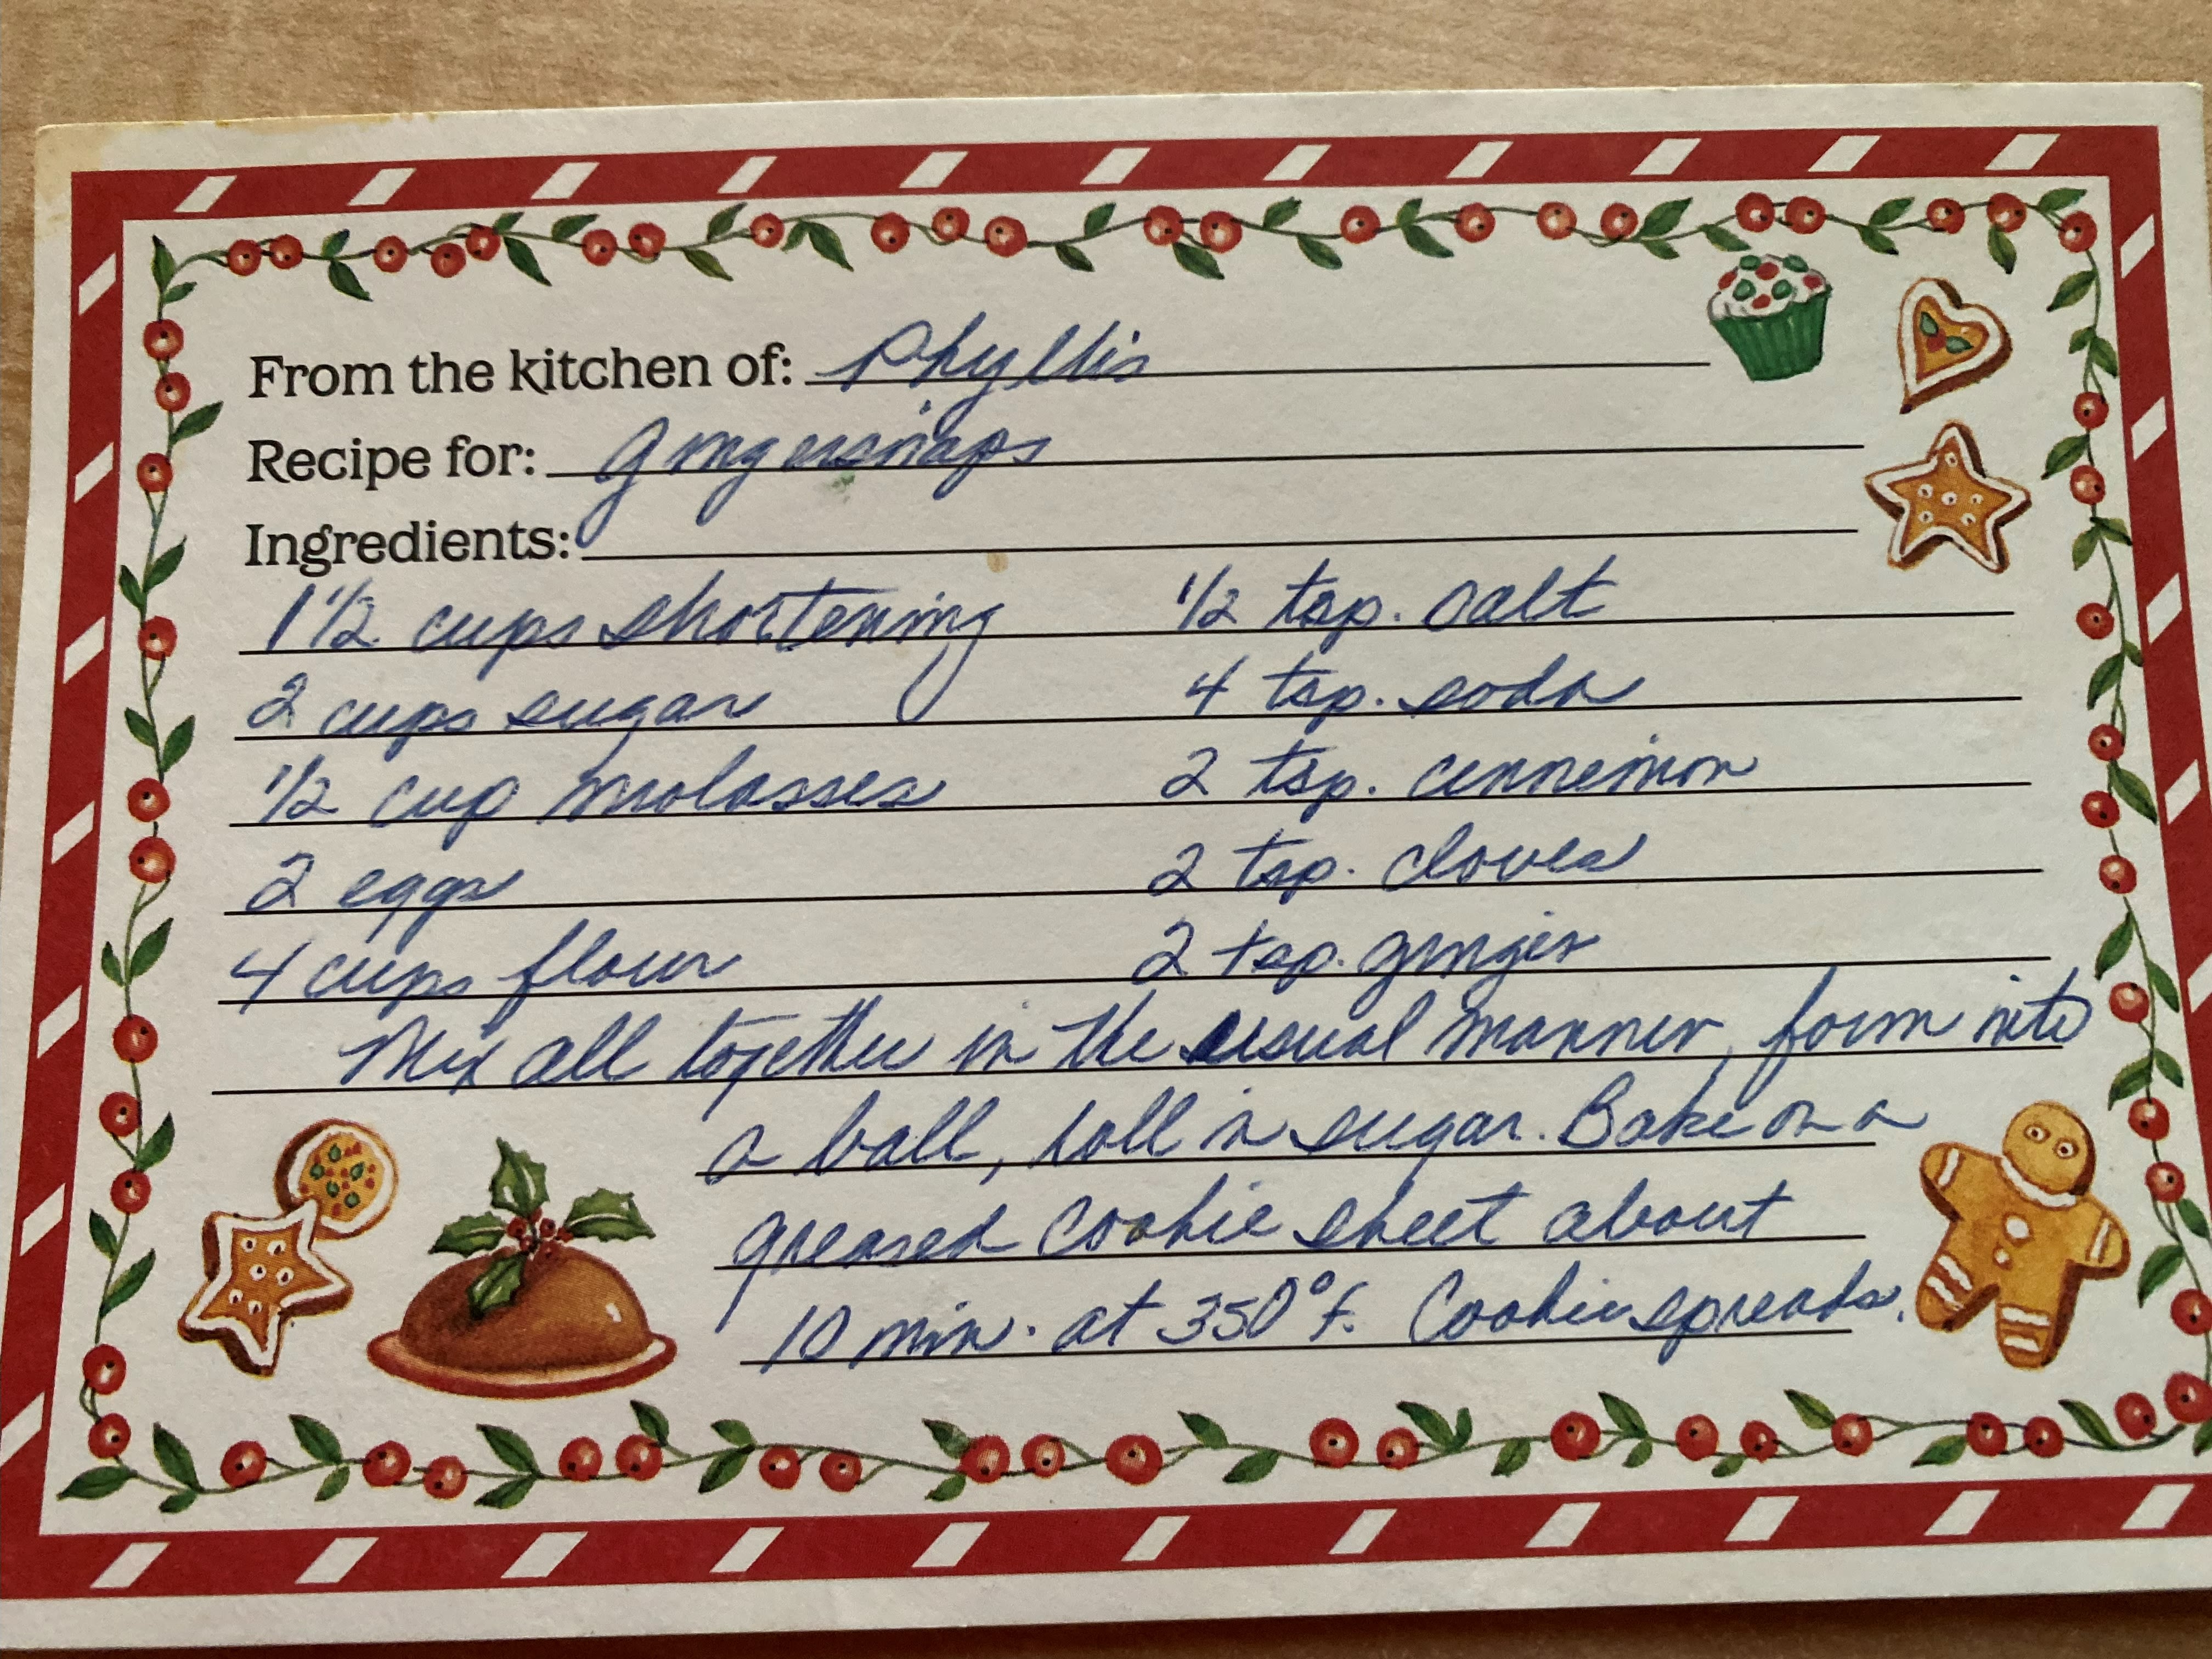 From the kitchen of: Phyllis
Recipe for: Gingersnaps
Ingredients:
1 1/2 cups shortening 1/2 tsp. salt
2 cups sugar 4 tsp. soda
1/2 cup molasses 2 tsp. cinnemon
2 eggs 2 tsp. cloves
4 cups flour 2 tsp. ginger
Mix all together in the usual manner, form into
a ball, roll in sugar. Bake on a
greased cookie sheet about
10 min. at 350°F. Cookie spreads.